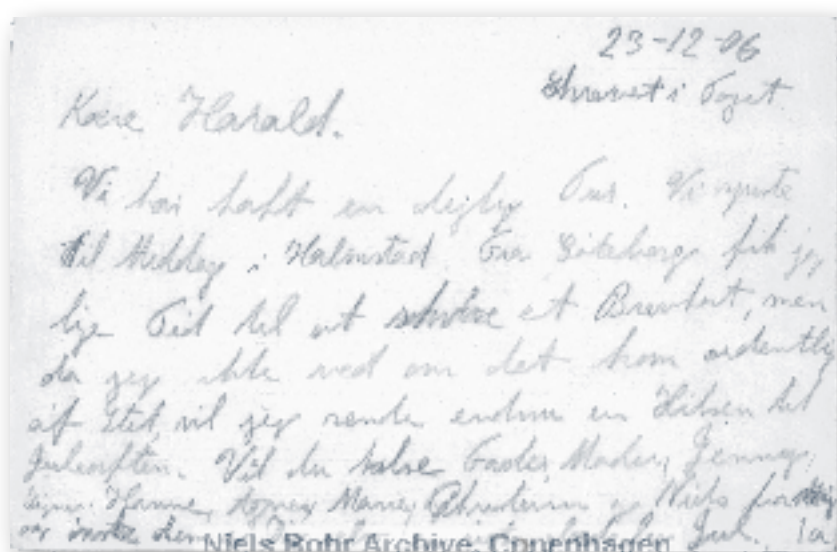 23-12-06
Skrevet i Toget.
Kære Harald.
Vi har haft en dejlig Tur. Vi spiste
til Middag i Halmstad. Fra Göteborg fik jeg
lige Tid til at skrive et Brevkort, men
da jeg ikke ved om det kom ordentlig
af Sted, vil jeg sende endnu en Hilsen til
Juleaften. Vil du hilse Fader, Moder, Jenny,
Hanne, Marie, Christensen og Niels
Jul,
Niels Bohr Archive, Copenhagen